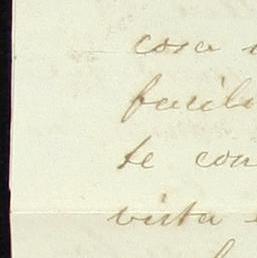 cosa
facil
te con
vista